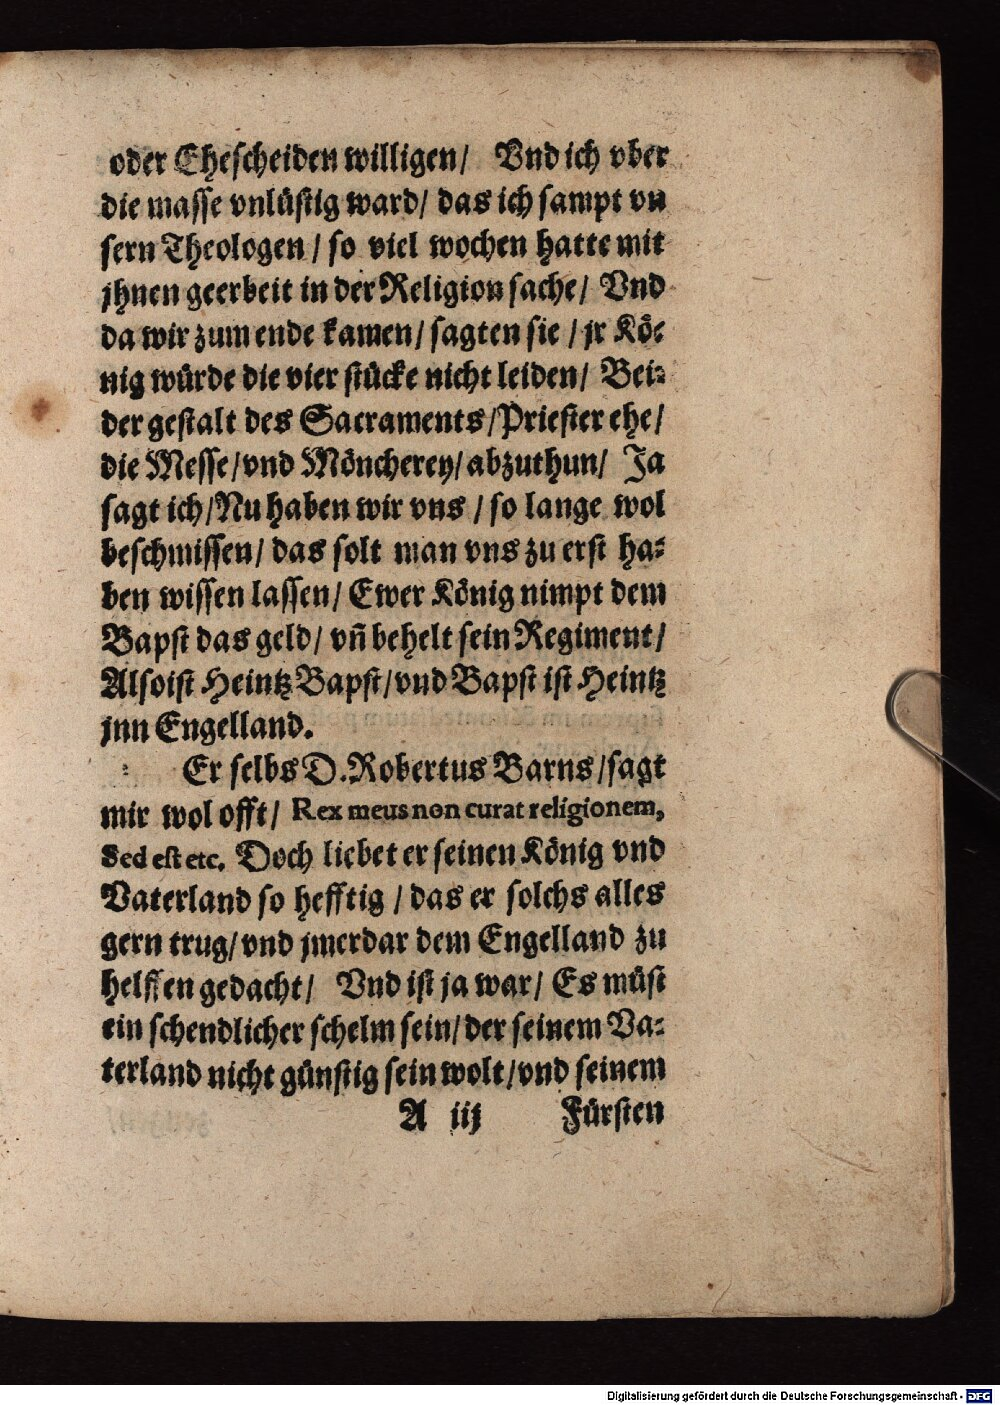 oder Ehescheiden willigen/ Vnd ich vber
die masse vnlüstig ward/ das ich sampt vn
sern Theologen / so viel wochen hatte mit
jhnen geerbeit in der Religion sache/ Vnd
da wir zum ende kamen/ sagten sie / jr Kö⸗
nig würde die vier stücke nicht leiden/ Bei⸗
der gestalt des Sacraments/Priester ehe/
die Messe/vnd Möncherey/abzuthun/ Ja
sagt ich/Nu haben wir vns / so lange wol
beschmissen/ das solt man vns zu erst ha⸗
ben wissen lassen/ Ewer König nimpt dem
Bapst das geld/ vñ behelt sein Regiment/
Also ist Heintz Bapst/vnd Bapst ist Heintz
jnn Engelland.
Er selbs D.Robertus Barns/sagt
mir wol offt/ Rex meus non curat religionem,
Sed est etc. Doch liebet er seinen König vnd
Vaterland so hefftig / das er solchs alles
gern trug/vnd jmerdar dem Engelland zu
helffen gedacht/ Vnd ist ja war/ Es müst
ein schendlicher schelm sein/der seinem Va⸗
terland nicht günstig sein wolt/vnd seinem
A iij Fürsten
Digitalisierung gefördert durch die Deutsche Forschungsgemeinschaft - DFG